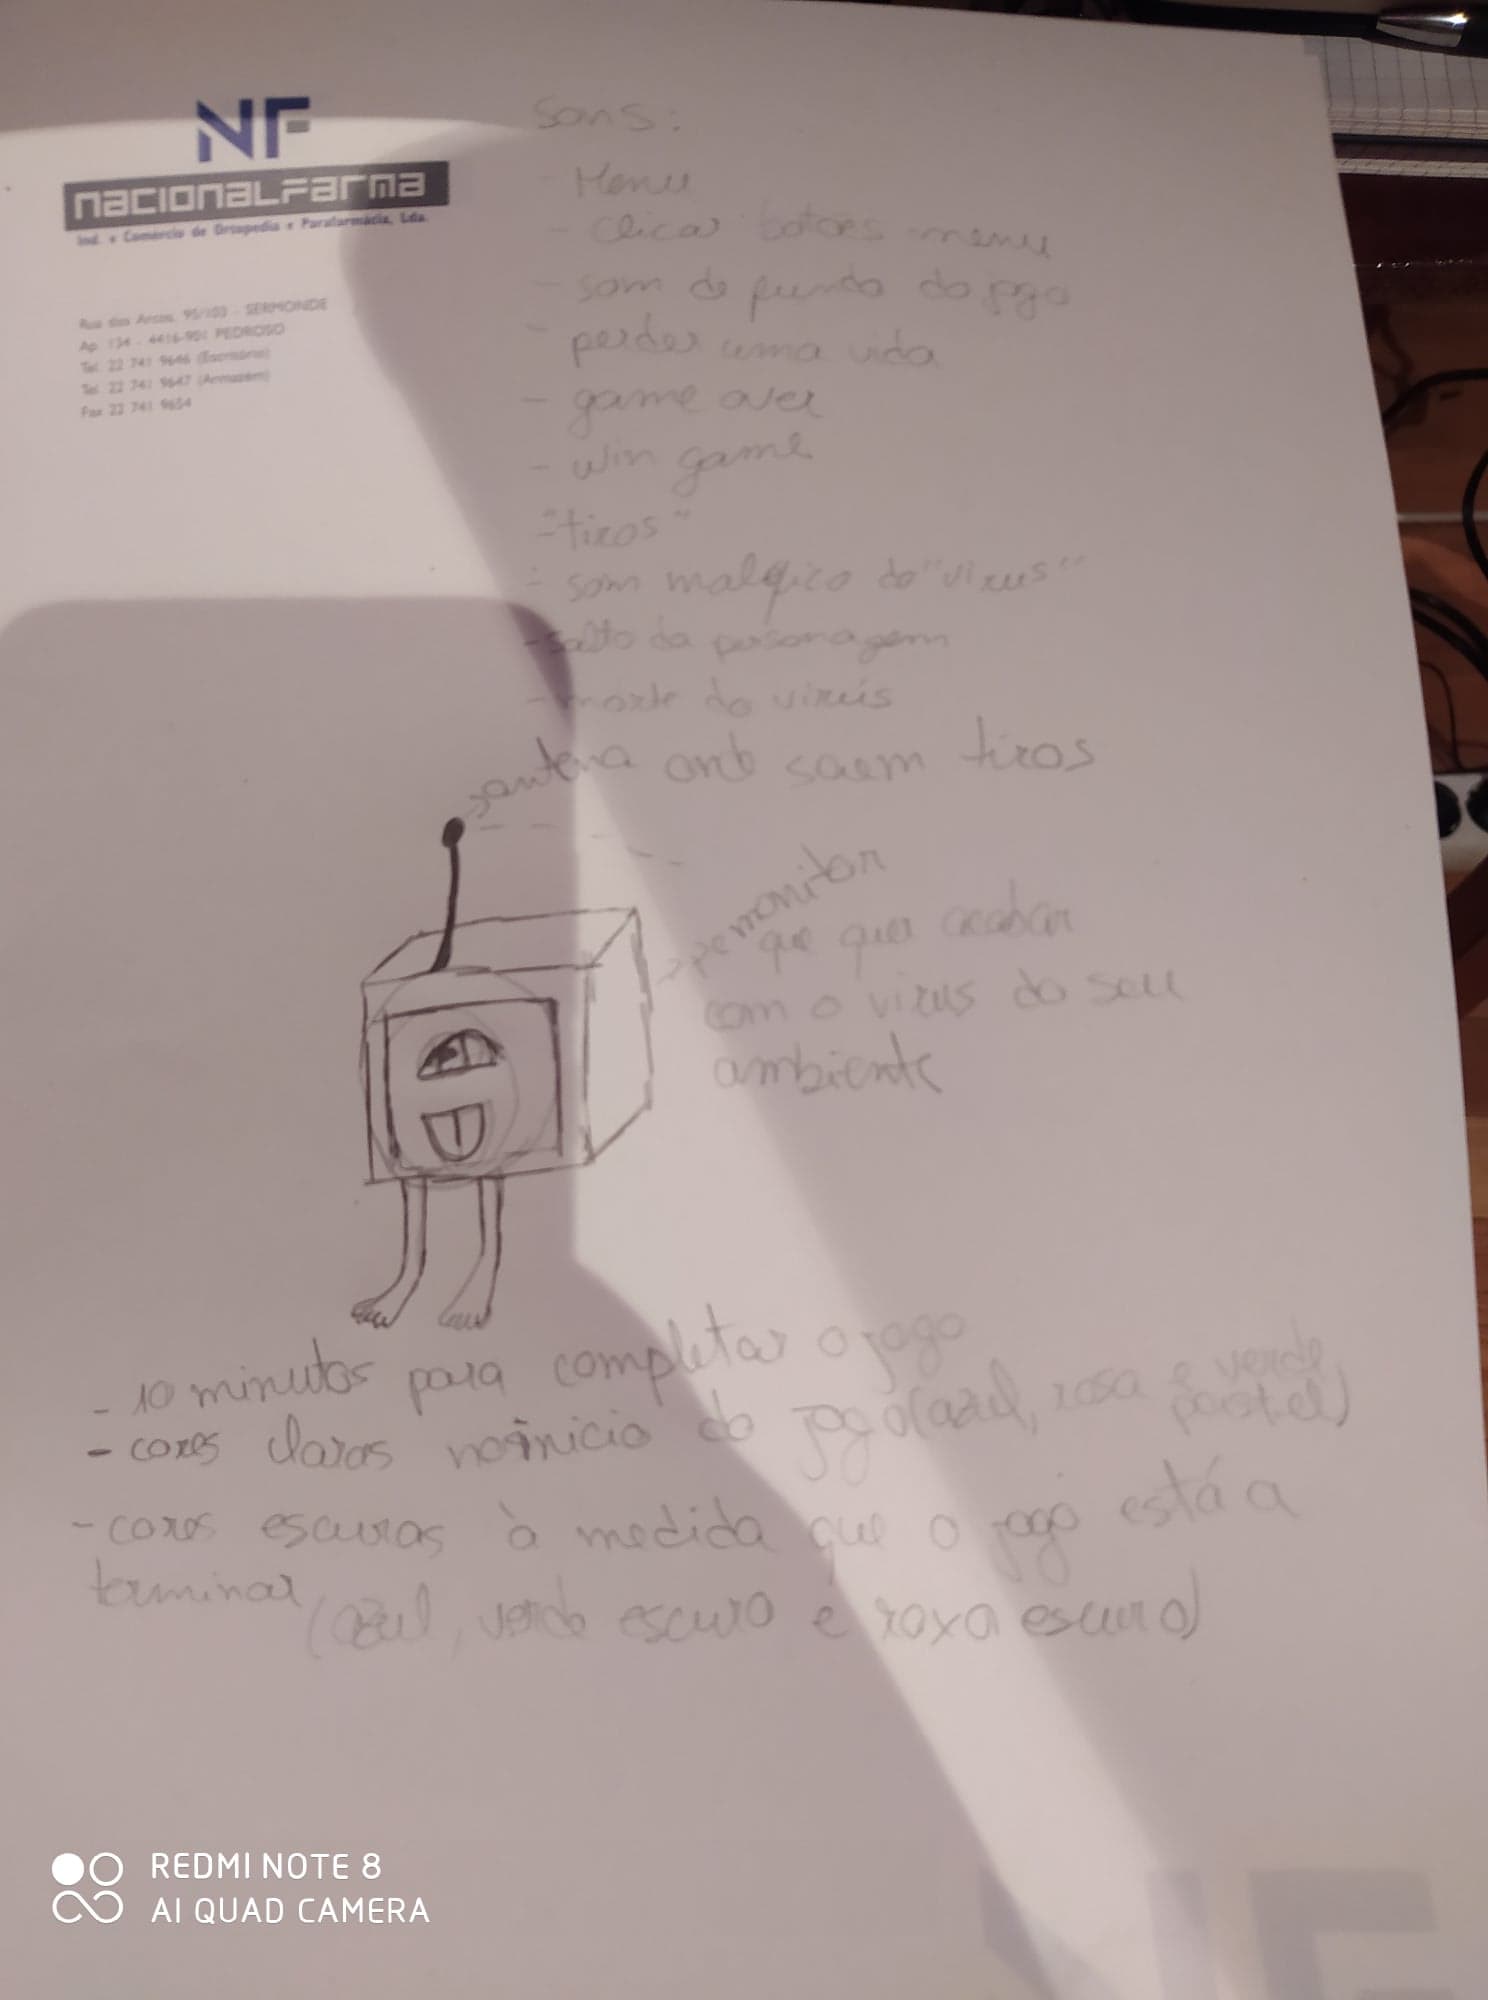 NF
nacionalfarma
Ind. e Comércio de Ortopedia e Parafarmácia, Lda.
Rua dos Arcos, 95/103 - SERMONDE
Ap. 134 - 4416-901 PEDROSO
Tel. 22 741 9646 (Escritório)
Tel. 22 741 9647 (Armazém)
Fax 22 741 9654
Sons:
- Menu
- clicar botões menu
- som de fundo do jogo
- perder uma vida
- game over
- win game
- "tiros"
- som maléfico do "virus"
- salto da personagem
- morte do virús
antena onb saem tiros
monitor
que quer acabar
com o virus do seu
ambiente
- 10 minutos para completar o jogo
- cores claras no ínicio do jogo (azul, rosa e verde
pastel)
- cores escuras à medida que o jogo está a
terminar
(azul, verde escuro e roxa escuro)
REDMI NOTE 8
AI QUAD CAMERA